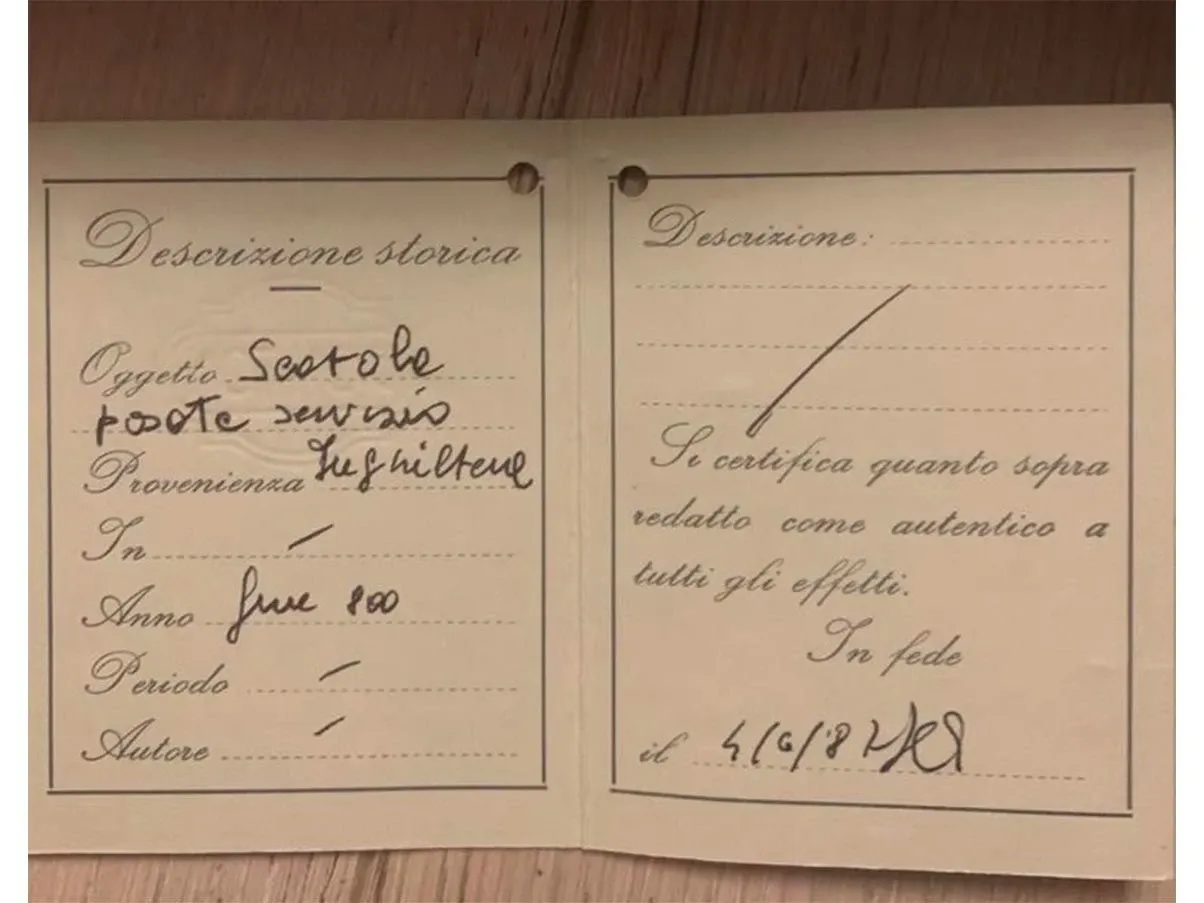 Descrizione storica
Oggetto Scatola
posate servizio
Provenienza Inghilterra
In
Anno fine 800
Periodo
Autore
Descrizione:
Si certifica quanto sopra
redatto come autentico a
tutti gli effetti.
In fede
il 4/6/82